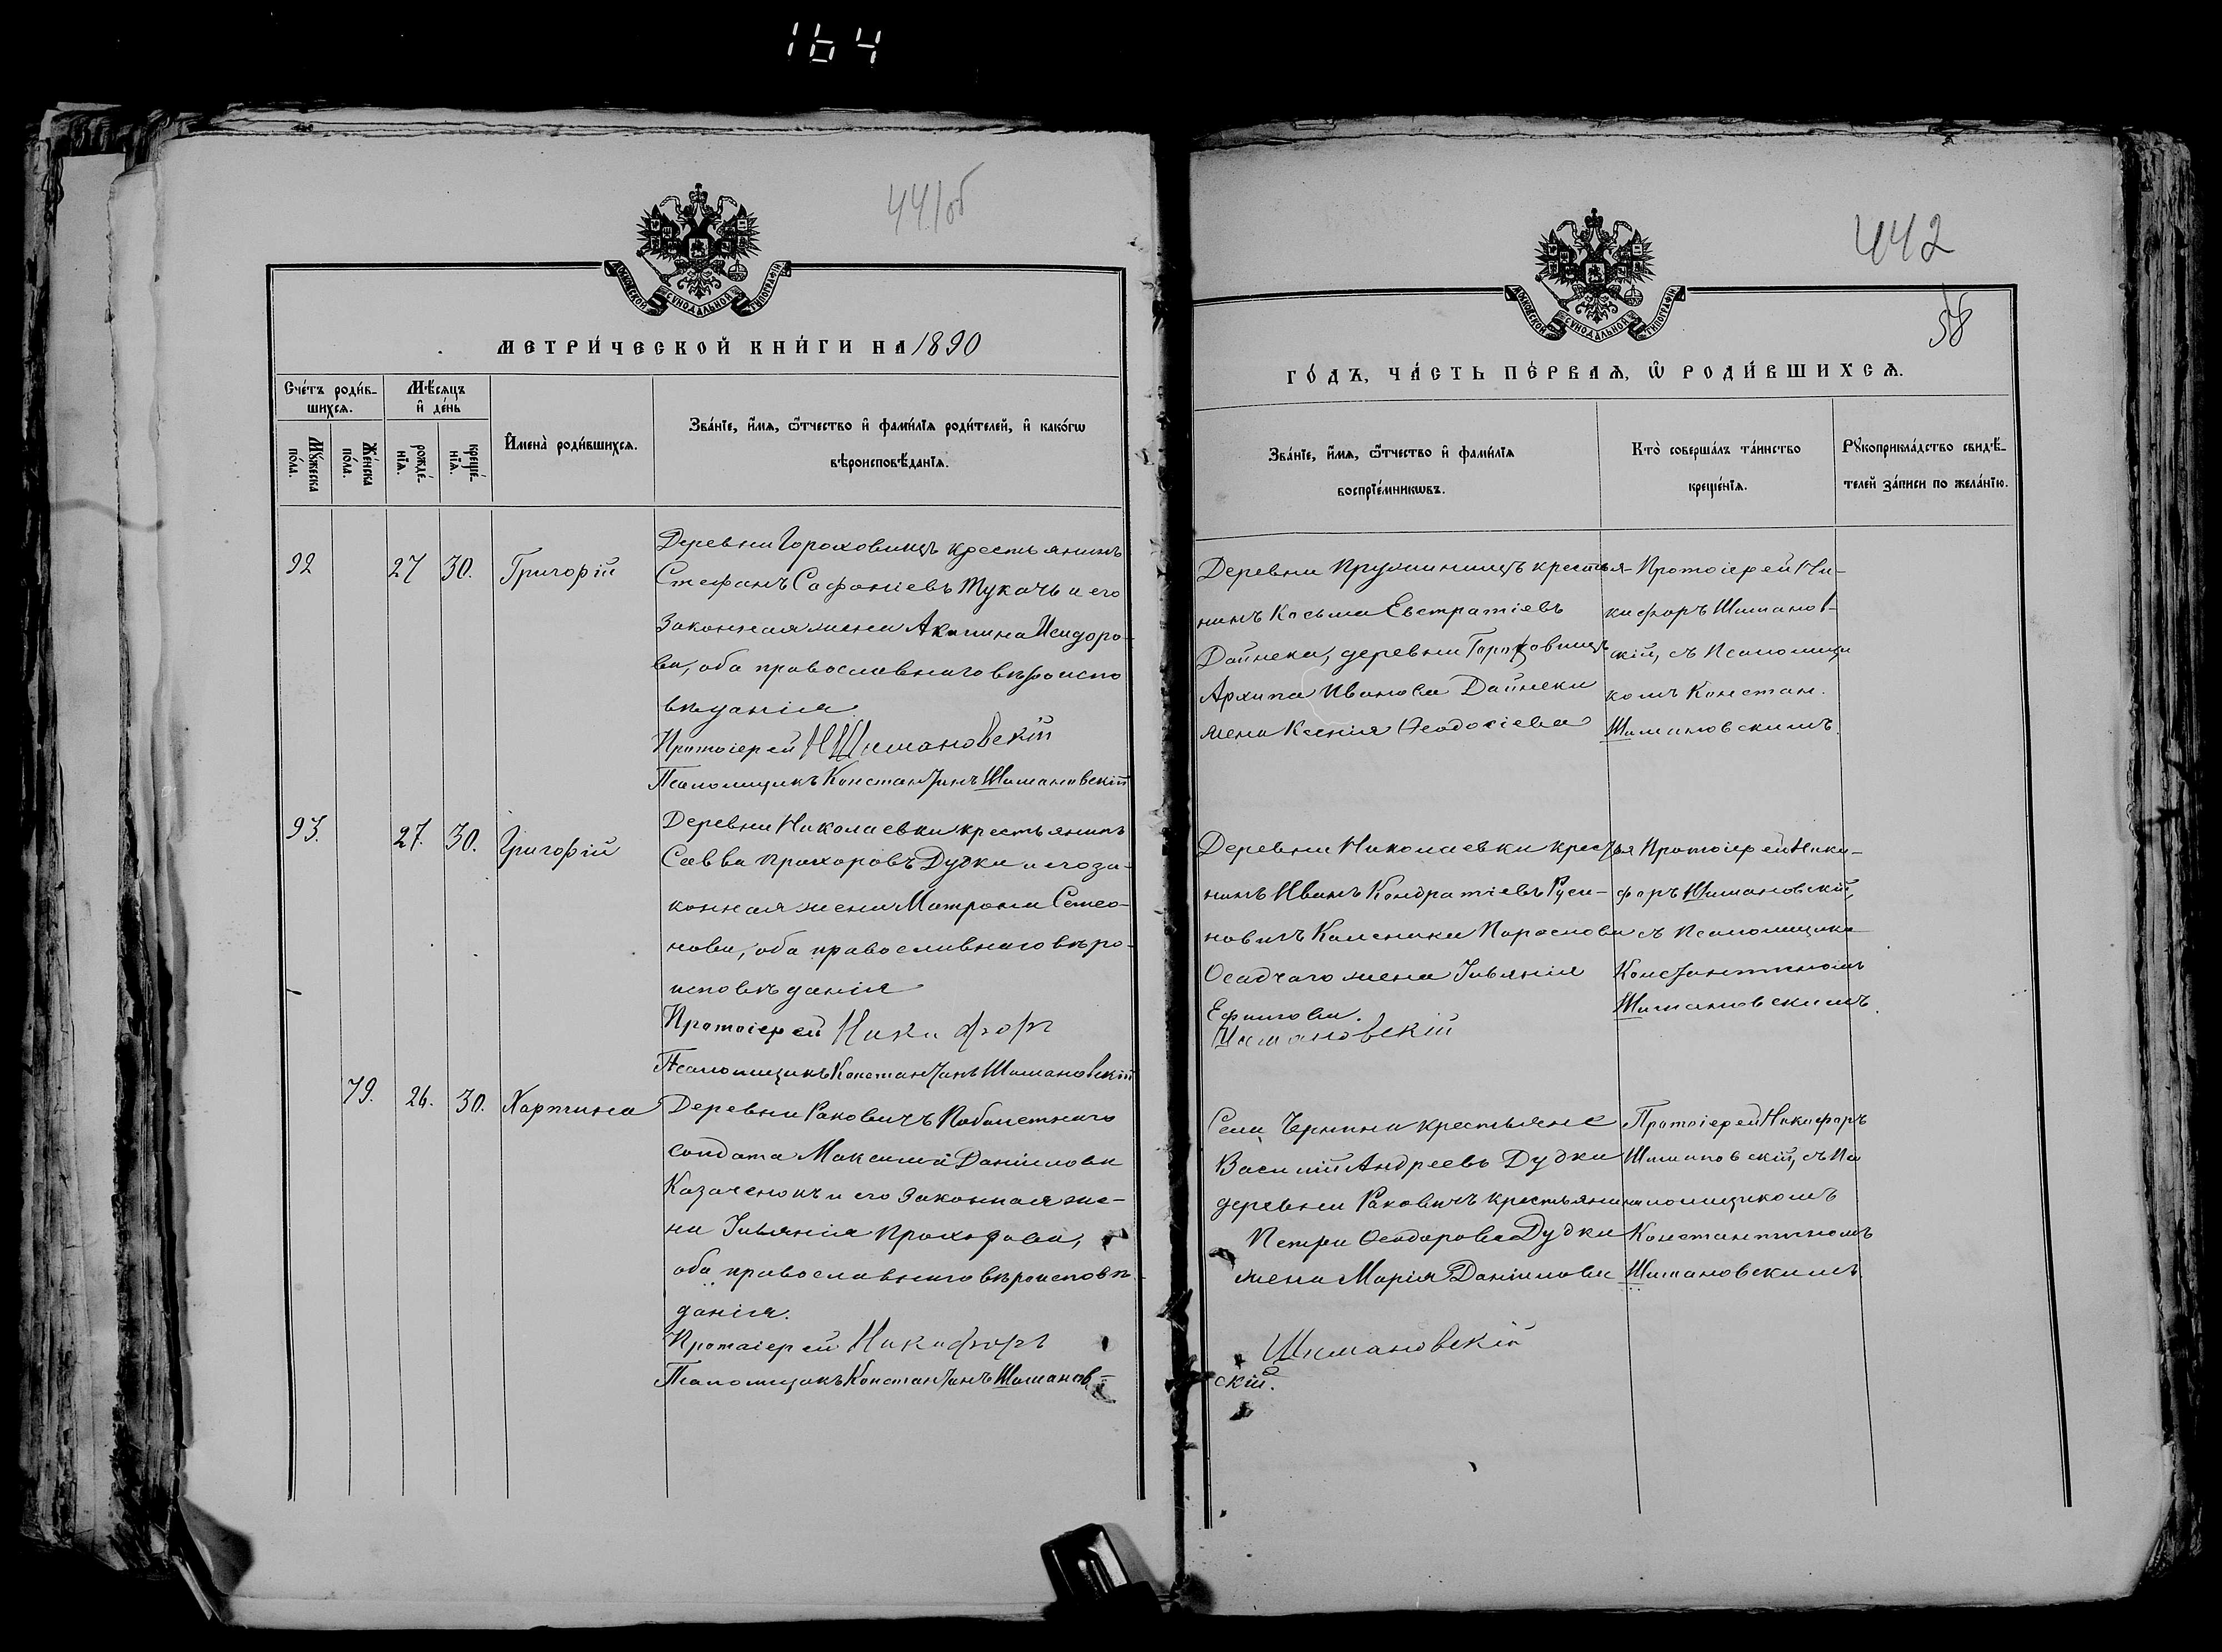 164
441об
МОСКОВСКОЙ СѴНОДАЛЬНОЙ ТИПОГРАФІИ
МЕТРИ́ЧЕСКОЙ КНИ́ГИ НА 1890
Сче́тъ роди́в-
шихсѧ.
Мѣ́сѧцъ
и҆ де́нь
Мꙋ́жеска
по́ла.
Же́нска
по́ла.
рожде́-
нїѧ.
креще́-
нїѧ.
И҆мена̀ роди́вшихсѧ.
Зва́нїе, и҆́мѧ, ѻ҆́тчество и҆ фами́лїѧ роди́телей, и҆ како́гѡ
вѣроисповѣ́данїѧ.
92 27 30. Григорій
Деревни Гороховищъ крестьянинъ
Стефанъ Сафоніевъ Тукачъ и его
законная жена Акилина Исидоро-
ва, оба православнаго вѣроиспо
вѣданія
Протоіерей Н Шимановскій
Псаломщикъ Константинъ Шимановскій
93. 27. 30. Григорій
Деревни Николаевки крестьянинъ
Савва Прохоровъ Дудка и его за-
конная жена Матрона Стео-
нова, оба православнаго вѣро-
исповѣданія
Протоіерей Никифоръ
Псаломщикъ Константинъ Шимановскій
79. 26. 30. Харитина
Деревни Раковичъ
солдата Максима Даніилова
Казаченокъ и его законная же-
на Іуліанія Прохорова,
оба православнаго вѣроисповѣ-
данія.
Протоіерей Никифоръ
Псаломщикъ Константинъ Шиманов-
442
58
МОСКОВСКОЙ СѴНОДАЛЬНОЙ ТИПОГРАФІИ
ГО́ДЪ, ЧА́СТЬ ПЕ́РВАѦ, Ѽ РОДИ́ВШИХСѦ.
Зва́нїе, и҆́мѧ, ѻ҆́тчество и҆ фами́лїѧ
воспрїе́мникѡвъ.
Кто̀ соверша́лъ та́инство
креще́нїѧ.
Рꙋкоприкла́дство свидѣ́-
телей за́писи по жела́нїю.
Деревни Пружинищъ крестья-
нинъ Косьма Евстратіевъ
Дайнека, деревни Гороховищъ
Архипа Иванова Дайнеки
жена Ксенія Ѳеодосіева
Протоіерей Ни-
кифоръ Шиманов-
скій, съ Псаломщи
комъ Констан.
Шимановскимъ.
Деревни Николаевки крестья
нинъ Иванъ Кондратіевъ Руси-
новичъ
Осадчаго жена Іуліанія
Ефимова.
Шимановскій
Протоіерей Ники-
форъ Шимановскій,
съ Псаломщико
Константиномъ
Шимановскимъ.
Села Чернина крестьяне
Василій Андреевъ Дудка
деревни Раковичъ крестьянина
Петра Ѳеодорова Дудки
жена Марія Даніилова
Шимановскій
скій.
Протоіерей Никифоръ
Шимановскій, съ Пса
ломщикомъ
Константиномъ
Шимановскимъ